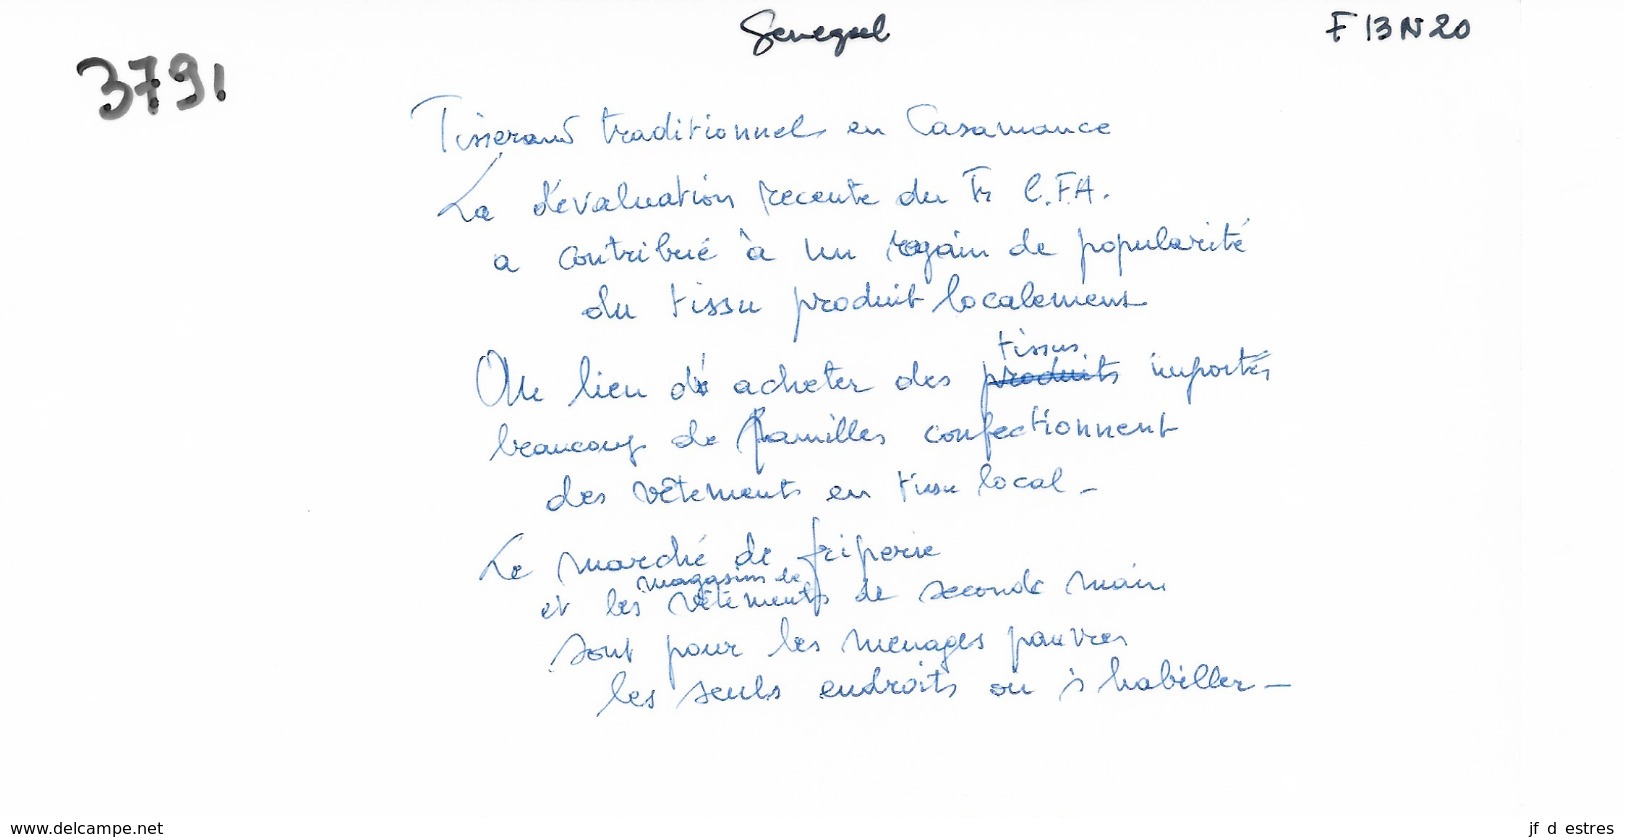 Senegal
F 13 N 20
3791
Tisserand traditionnel en Casamance
La dévaluation recente du Fr C.F.A.
a contribué à un regain de popularité
du tissu produit localement
Au lieu d' acheter des produits tissus importés
beaucoup de familles confectionnent
des vêtements en tissu local -
Le marché de friperie
et les magasins de vêtements de seconde main
sont pour les menages pauvres
les seuls endroits ou s'habiller -
www.delcampe.net
jf d estres